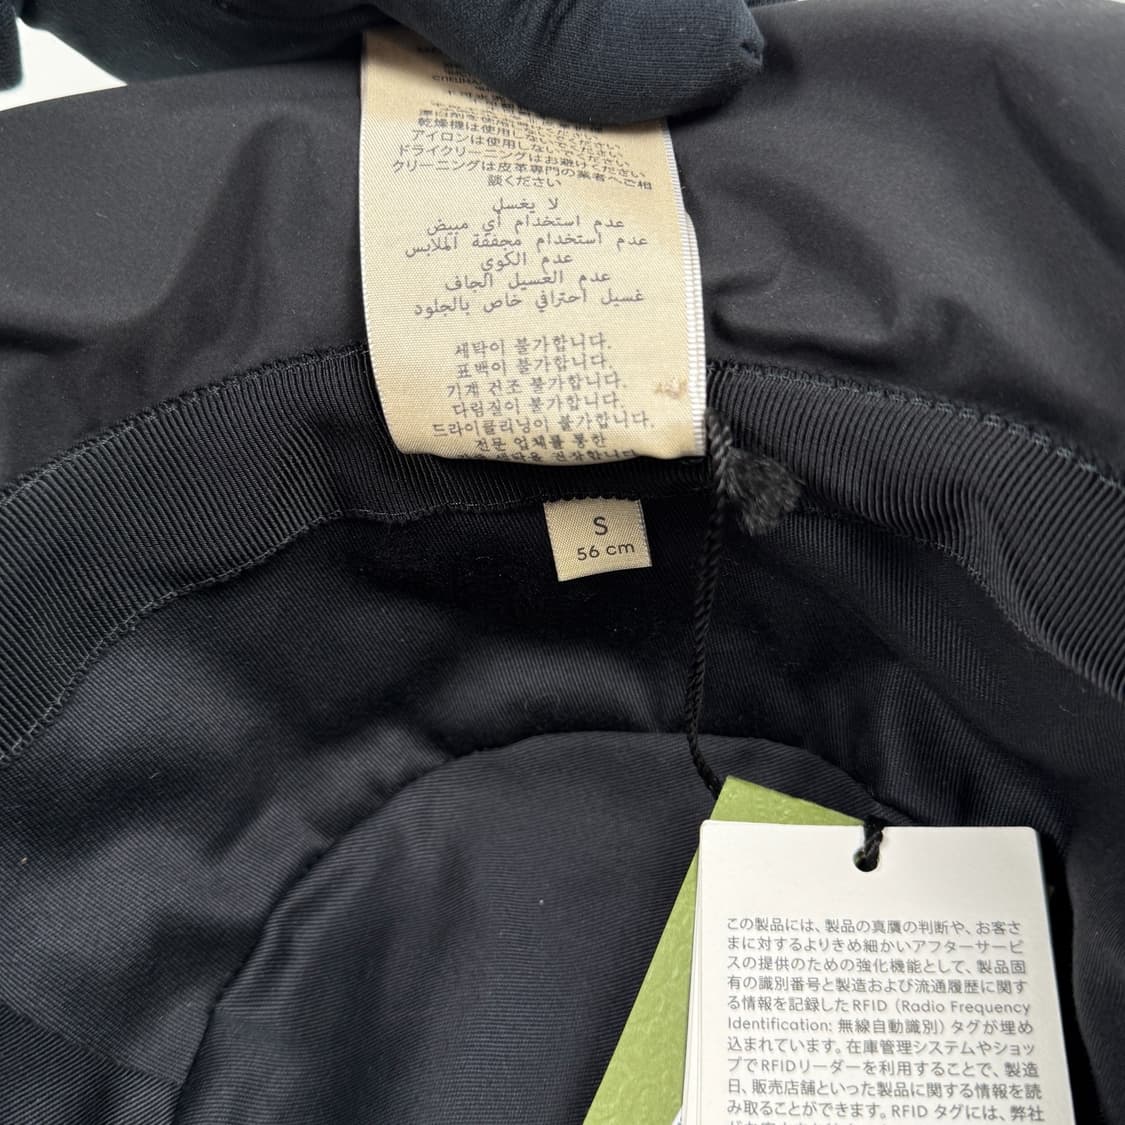 漂白剤を使用しないでください
乾燥機は使用しないでください。
アイロンは使用しないでください。
ドライクリーニングはお避けください
クリーニングは皮革専門の業者へご相
談ください
لا يغسل
عدم استخدام أي مبيض
عدم استخدام مجففة الملابس
عدم الكوي
عدم الغسيل الجاف
غسيل احترافي خاص بالجلود
세탁이 불가합니다.
표백이 불가합니다.
기계 건조 불가합니다.
다림질이 불가합니다.
드라이클리닝이 불가합니다.
전문 업체를 통한
세탁을 권장합니다
S
56 cm
この製品には、製品の真贋の判断や、お客さ
まに対するよりきめ細かいアフターサービ
スの提供のための強化機能として、製品固
有の識別番号と製造および流通履歴に関す
る情報を記録したRFID（Radio Frequency
Identification: 無線自動識別）タグが埋め
込まれています。在庫管理システムやショッ
プでRFIDリーダーを利用することで、製造
日、販売店舗といった製品に関する情報を読
み取ることができます。RFID タグには、弊社